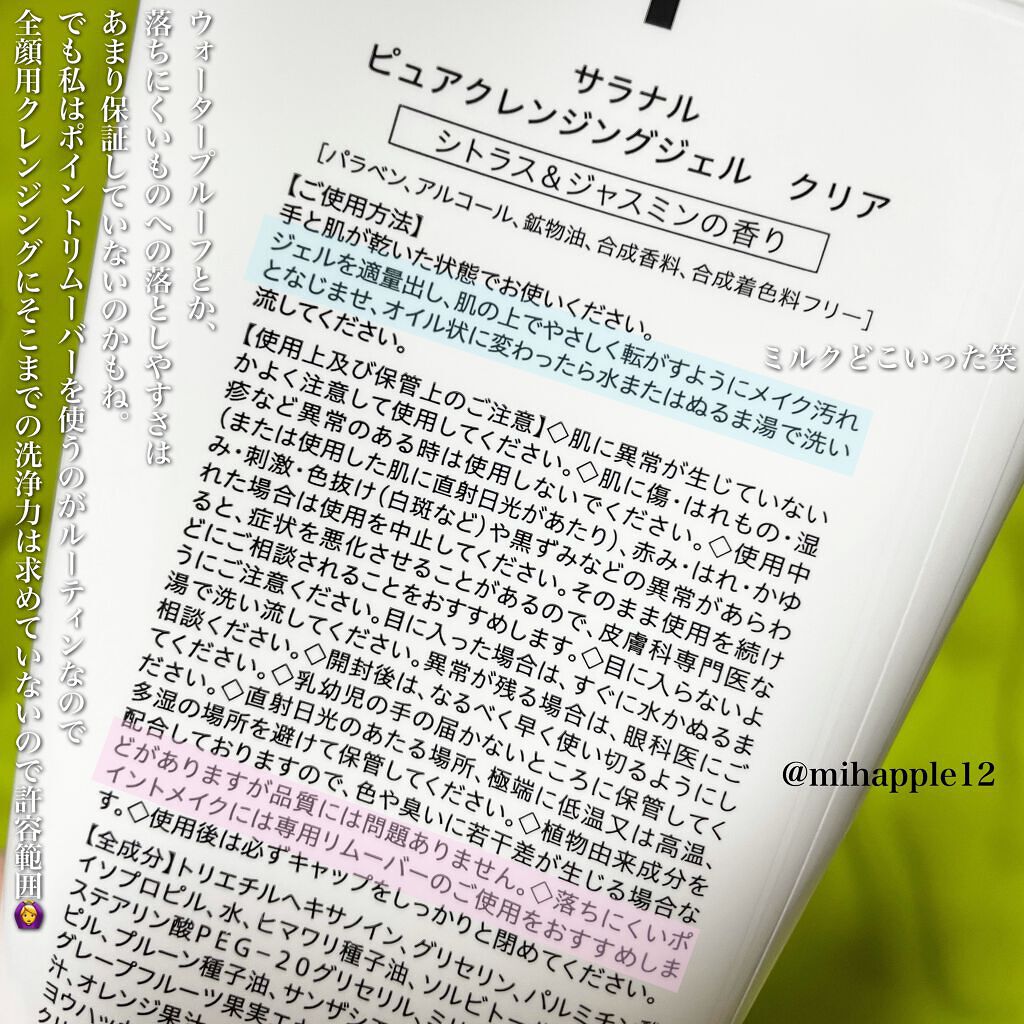 ウォータープルーフとか、
落ちにくいものへの落としやすさは
あまり保証していないのかもね。
でも私はポイントリムーバーを使うのがルーティンなので
全顔用クレンジングにそこまでの洗浄力は求めていないので許容範囲🙆‍♀️
サラナル
ピュアクレンジングジェル クリア
シトラス&ジャスミンの香り
[パラベン、アルコール、鉱物油、合成香料、合成着色料フリー]
【ご使用方法】
手と肌が乾いた状態でお使いください。
ジェルを適量出し、肌の上でやさしく転がすようにメイク汚れ
となじませ、オイル状に変わったら水またはぬるま湯で洗い
流してください。
ミルクどこいった笑
【使用上及び保管上のご注意】◇肌に異常が生じていない
かよく注意して使用してください。◇肌に傷・はれもの・湿
疹など異常のある時は使用しないでください。◇使用中
(または使用した肌に直射日光があたり)、赤み・はれ・かゆ
み・刺激・色抜け(白斑など)や黒ずみなどの異常があらわ
れた場合は使用を中止してください。そのまま使用を続け
ると、症状を悪化させることがあるので、皮膚科専門医な
どにご相談されることをおすすめします。◇目に入らないよ
うにご注意ください。目に入った場合は、すぐに水かぬるま
湯で洗い流してください。異常が残る場合は、眼科医にご
相談ください。◇開封後は、なるべく早く使い切るようにし
てください。◇乳幼児の手の届かないところに保管してく
ださい。◇直射日光のあたる場所、極端に低温又は高温、
多湿の場所を避けて保管してください。◇植物由来成分を
配合しておりますので、色や臭いに若干差が生じる場合な
どがありますが品質には問題ありません。◇落ちにくいポ
イントメイクには専用リムーバーのご使用をおすすめしま
す。◇使用後は必ずキャップをしっかりと閉めてください。
【全成分】トリエチルヘキサノイン、グリセリン、パルミチン酸
イソプロピル、水、ヒマワリ種子油、ソルビトール
ステアリン酸PEG-20グリセリル、ミリ
ピル、プルーン種子油、サンザシエ
グレープフルーツ果実エキ
汁、オレンジ果汁
ヨウハッカ
@mihapple12